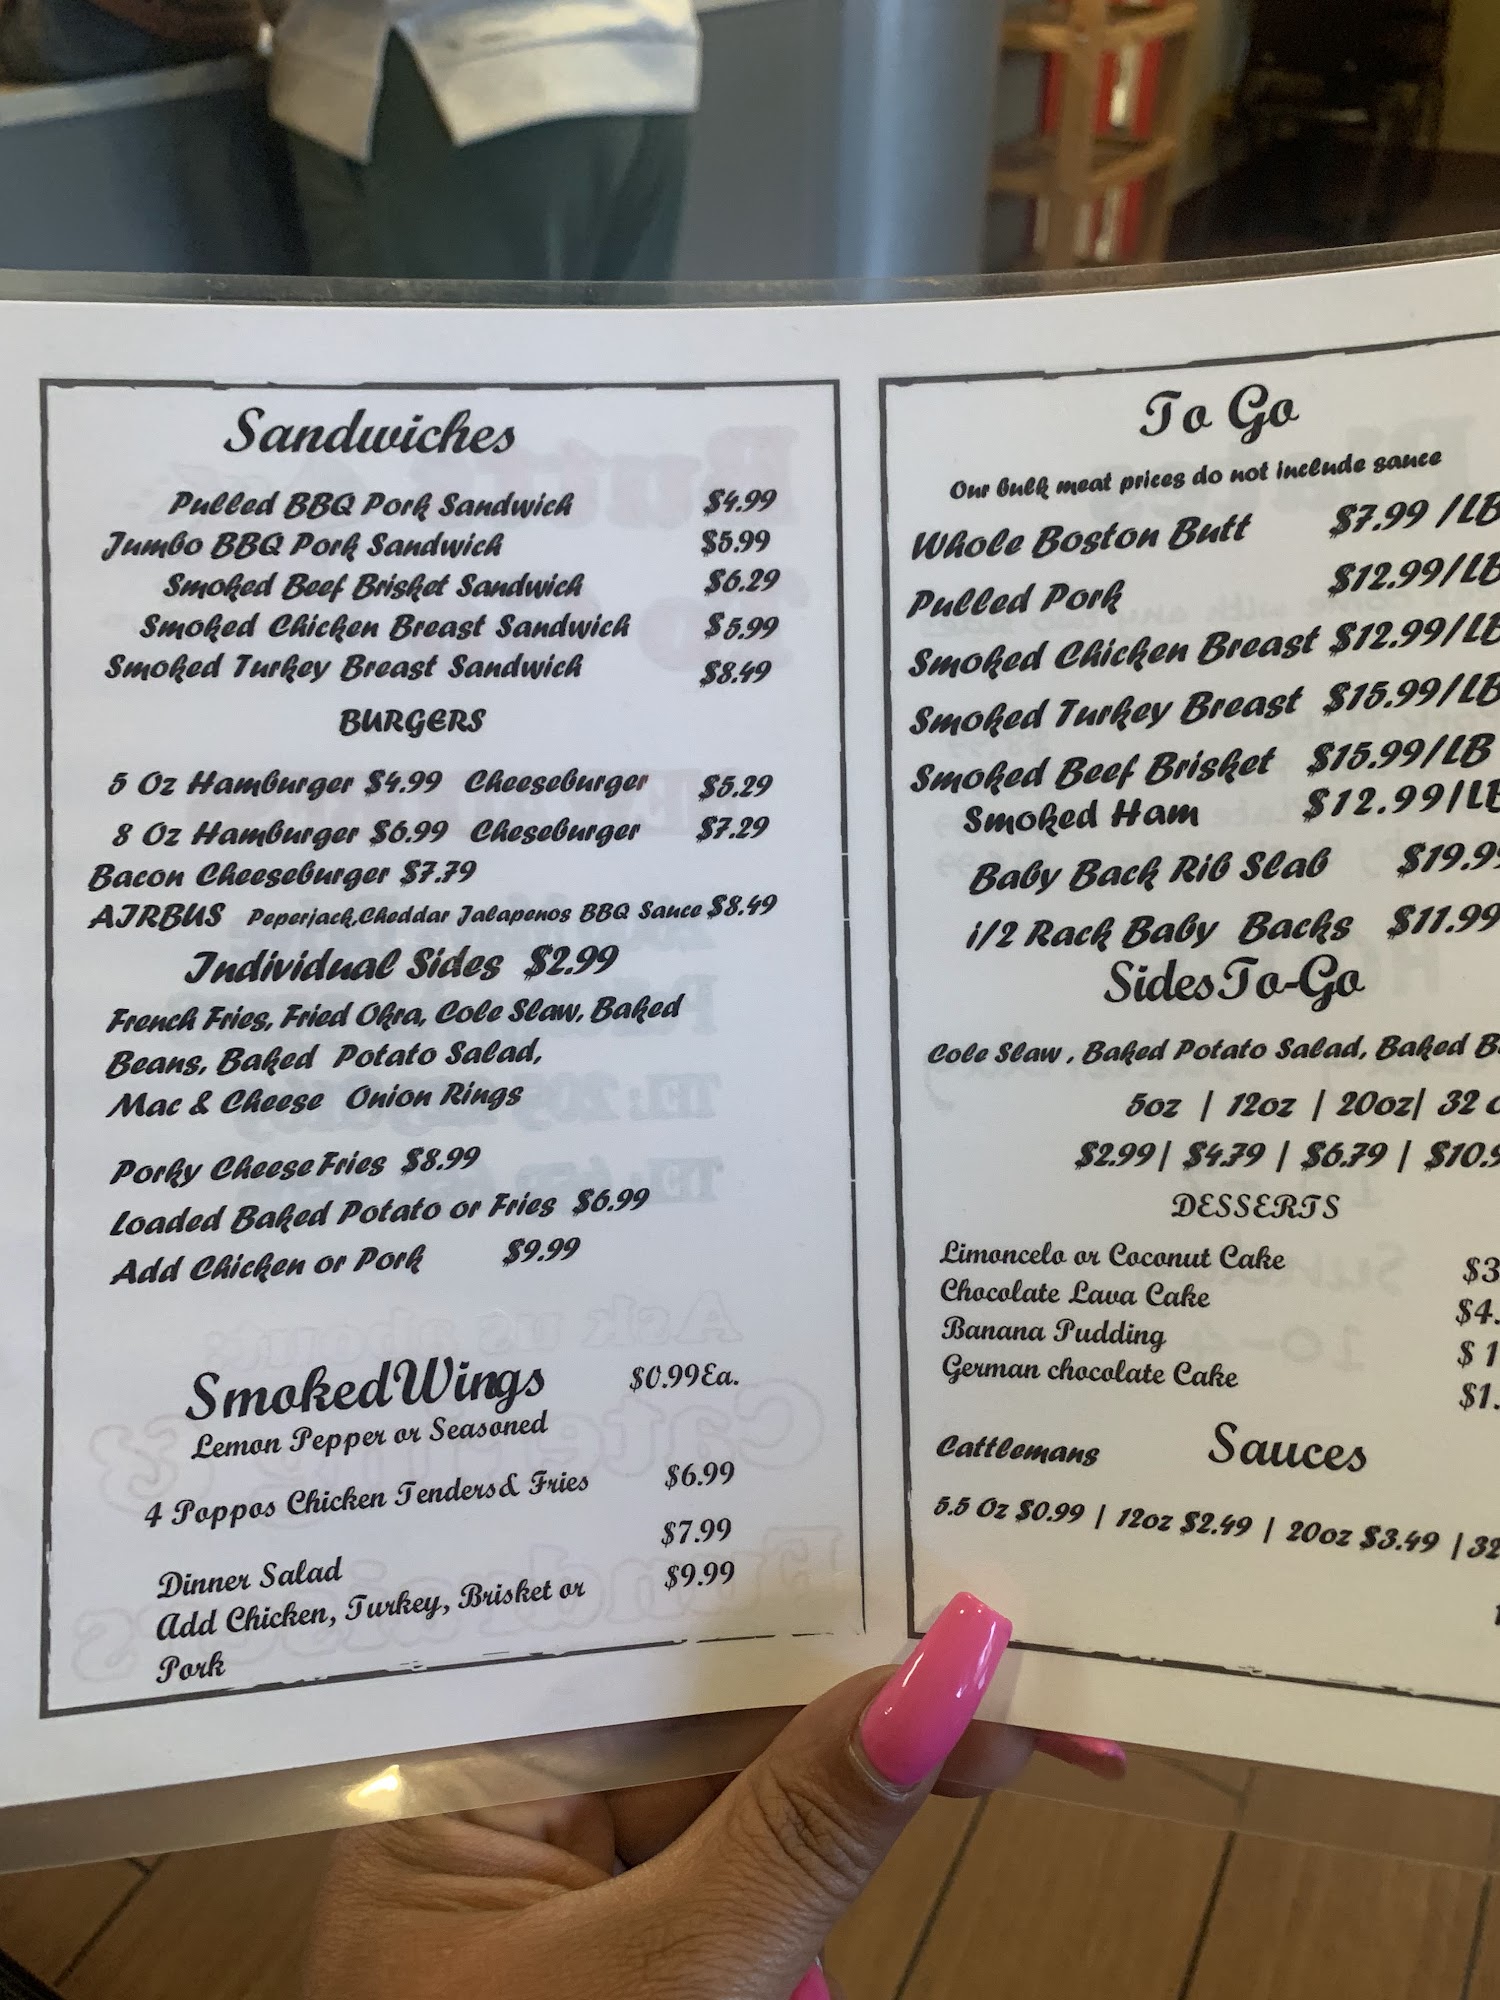 Sandwiches
Pulled BBQ Pork Sandwich $4.99
Jumbo BBQ Pork Sandwich $5.99
Smoked Beef Brisket Sandwich $6.29
Smoked Chicken Breast Sandwich $5.99
Smoked Turkey Breast Sandwich $8.49
BURGERS
5 Oz Hamburger $4.99 Cheeseburger $5.29
8 Oz Hamburger $6.99 Cheseburger $7.29
Bacon Cheeseburger $7.79
AIRBUS Peperjack,Cheddar Jalapenos BBQ Sauce $8.49
Individual Sides $2.99
French Fries, Fried Okra, Cole Slaw, Baked
Beans, Baked Potato Salad,
Mac & Cheese Onion Rings
Porky Cheese Fries $8.99
Loaded Baked Potato or Fries $6.99
Add Chicken or Pork $9.99
Smoked Wings $0.99Ea.
Lemon Pepper or Seasoned
4 Poppos Chicken Tenders& Fries $6.99
Dinner Salad $7.99
Add Chicken, Turkey, Brisket or $9.99
Pork
To Go
Our bulk meat prices do not include sauce
Whole Boston Butt $7.99 /LB
Pulled Pork $12.99/LB
Smoked Chicken Breast $12.99/LB
Smoked Turkey Breast $15.99/LB
Smoked Beef Brisket $15.99/LB
Smoked Ham $12.99/LB
Baby Back Rib Slab $19.99
i/2 Rack Baby Backs $11.99
Sides To-Go
Cole Slaw , Baked Potato Salad, Baked
5oz | 12oz | 20oz| 32
$2.99| $4.79 | $6.79 | $10.9
DESSERTS
Limoncelo or Coconut Cake $3
Chocolate Lava Cake $4.
Banana Pudding $ 1
German chocolate Cake $1.
Cattlemans Sauces
5.5 Oz $0.99 | 12oz $2.49 | 20oz $3.49 | 32